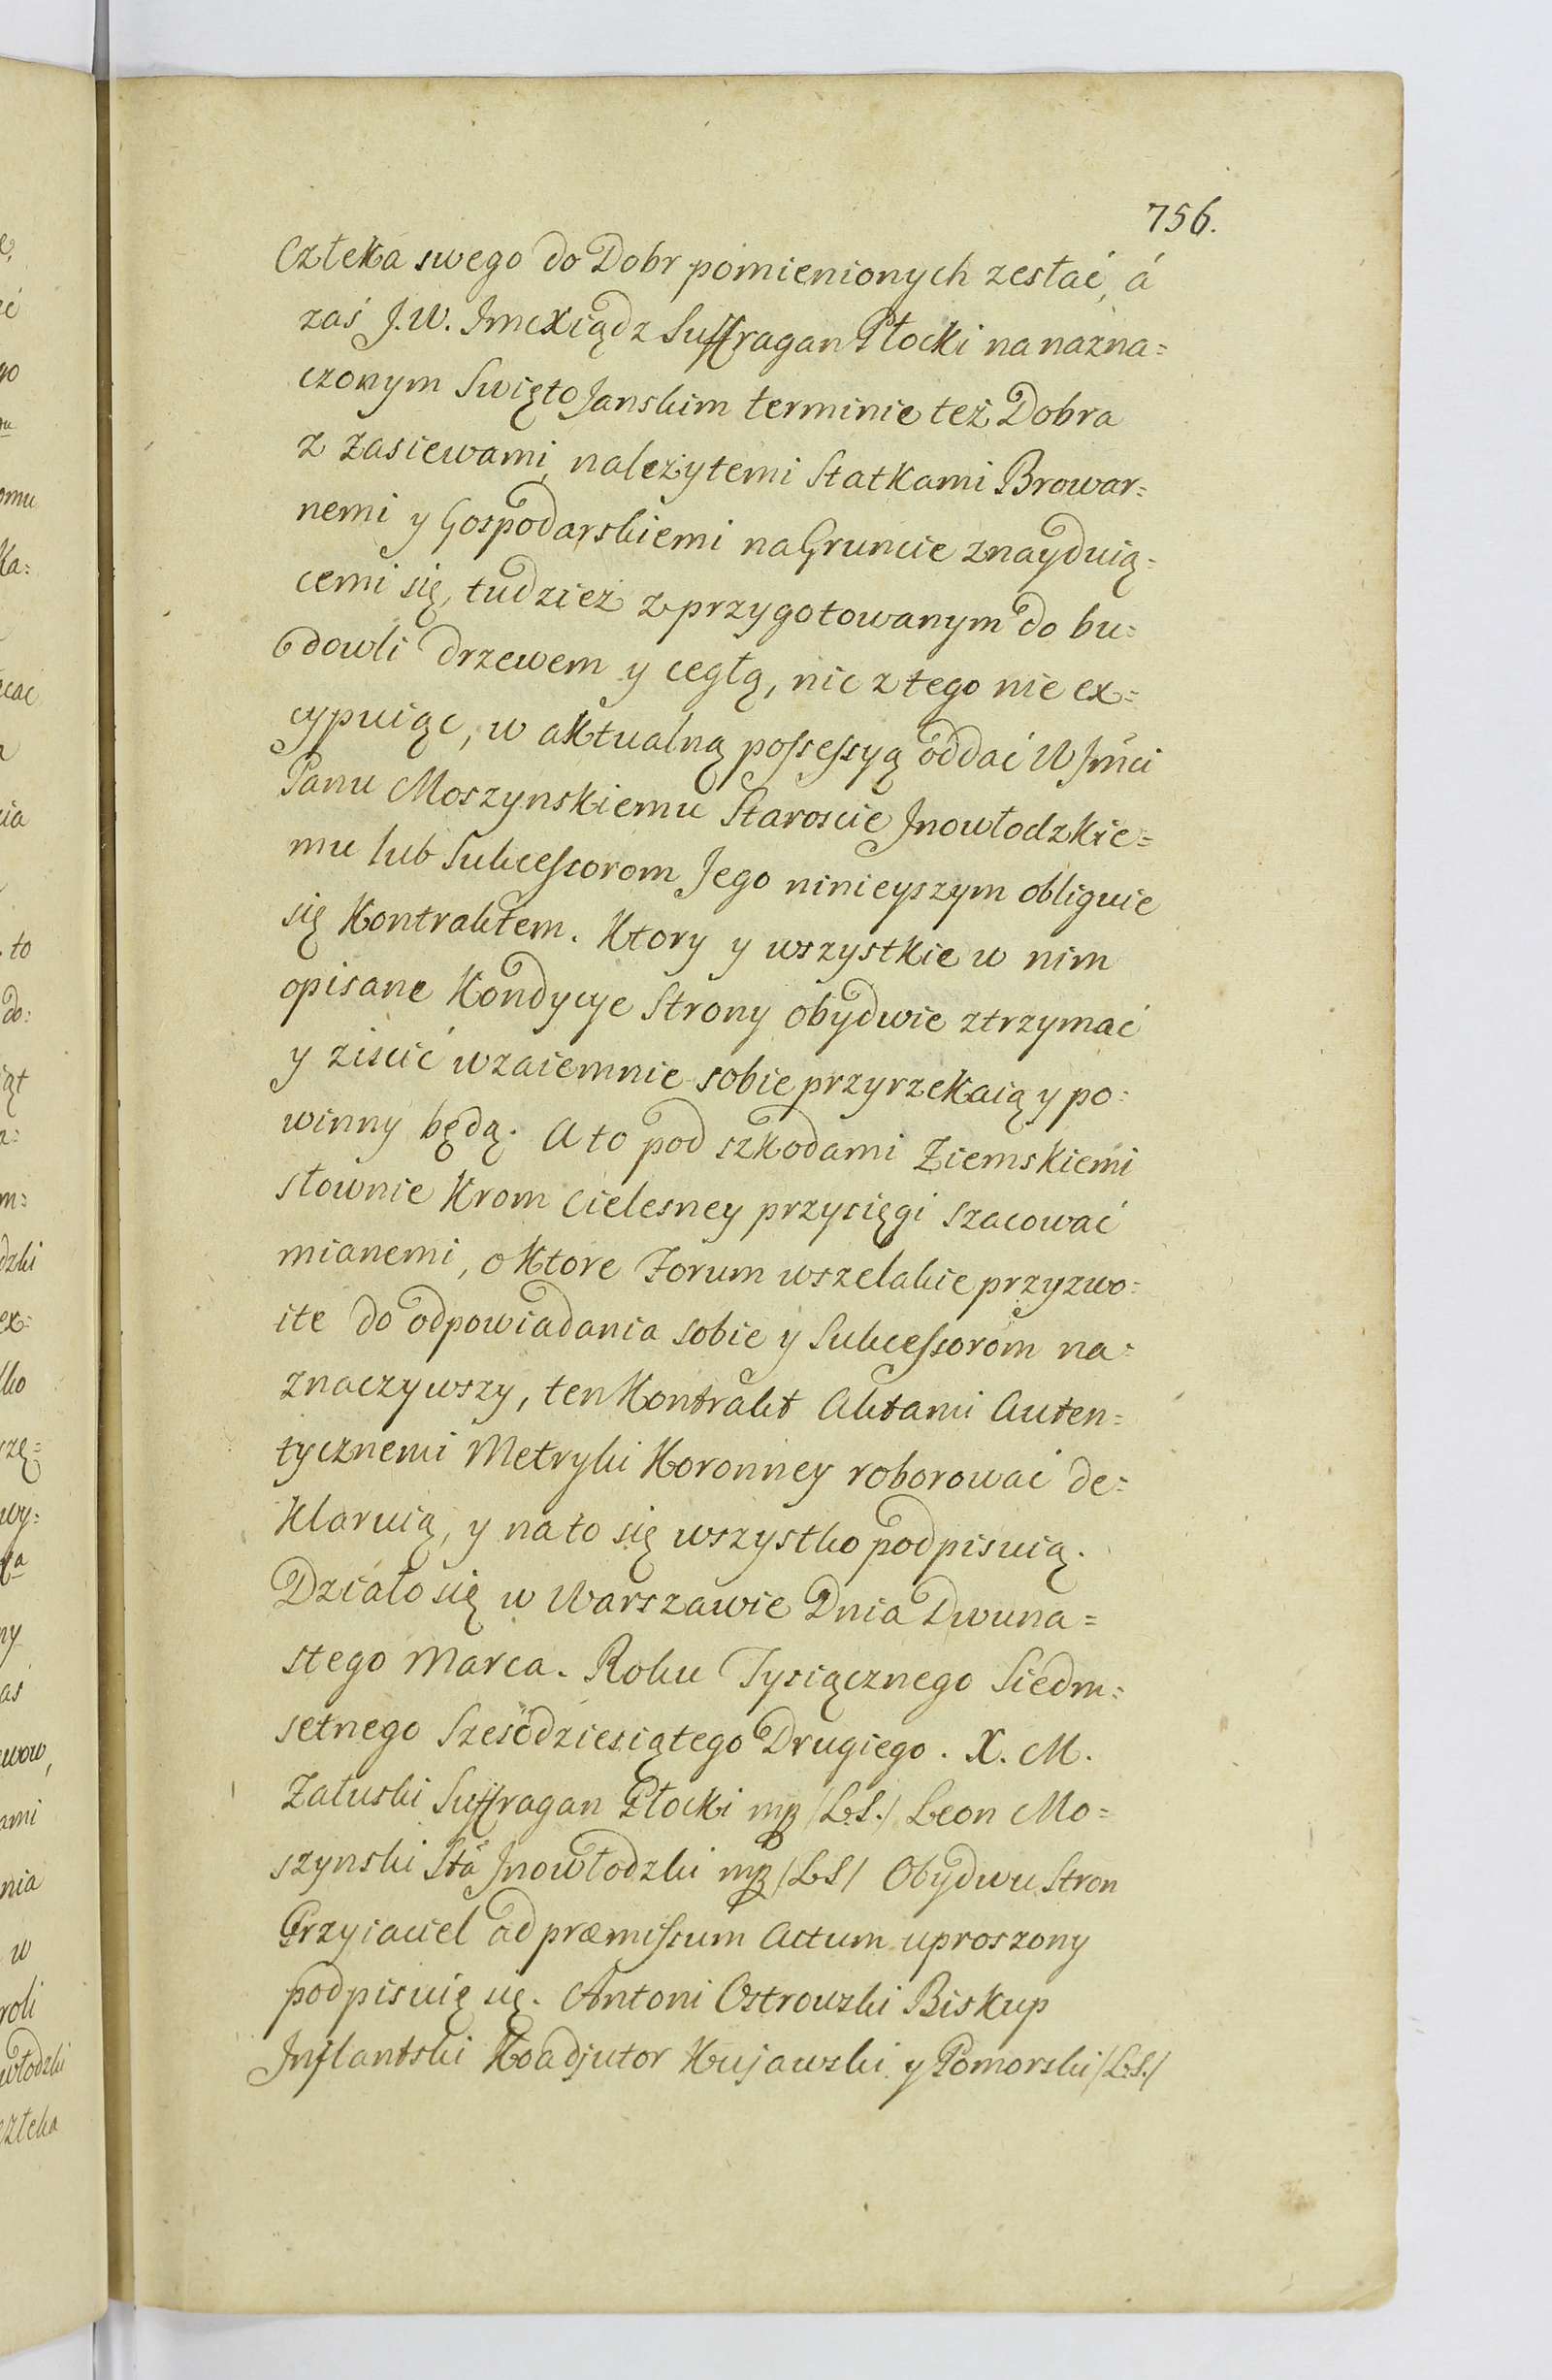 756.
Człeka swego do Dobr pomienionych zesłać, á
zaś J.W. Jmcxiądz Suffragan Płocki na nazna=
czonym Swięto Janskim terminie też Dobra
z zasiewami, należytemi Statkami Browar=
nemi y Gospodarskiemi na Gruncie znayduią=
cemi się, tudzież z przygotowanym do bu=
dowli drzewem y cegłą, nic z tego nie ex=
cypuiąc, w aktualną possessyą oddać W Jmci
Panu Moszynskiemu Staroscie Jnowłodzkie=
mu lub Sukcessorom Jego ninieyszym obliguie
się Kontraktem. Ktory y wszystkie w nim
opisane Kondycye Strony obydwie ztrzymać
y ziscić wzaiemnie sobie przyrzekaią y po=
winny będą. A to pod szkodami Ziemskiemi
słownie Krom Cielesney przysięgi szacować
mianemi, o Ktore Forum wszelakie przyzwo=
ite do odpowiadania sobie y Sukcessorom na=
znaczywszy, ten Kontrakt Aktami Auten=
tycznemi Metryki Koronney roborować de=
klaruią, y na to się wszystko podpisuią.
Działo się w Warszawie Dnia Dwuna=
stego Marca. Roku Tysiącznego Siedm=
setnego Sześćdziesiątego Drugiego. X. M.
Załuski Suffragan Płocki mp /L.S./ Leon Mo=
szynski Stã Jnowłodzki mp /LS/ Obydwu Stron
Przyiaciel ad præmissum Actum uproszony
podpisuię się. Antoni Ostrowski Biskup
Jnflantski Koadjutor Kujawski y Pomorski /L.S./